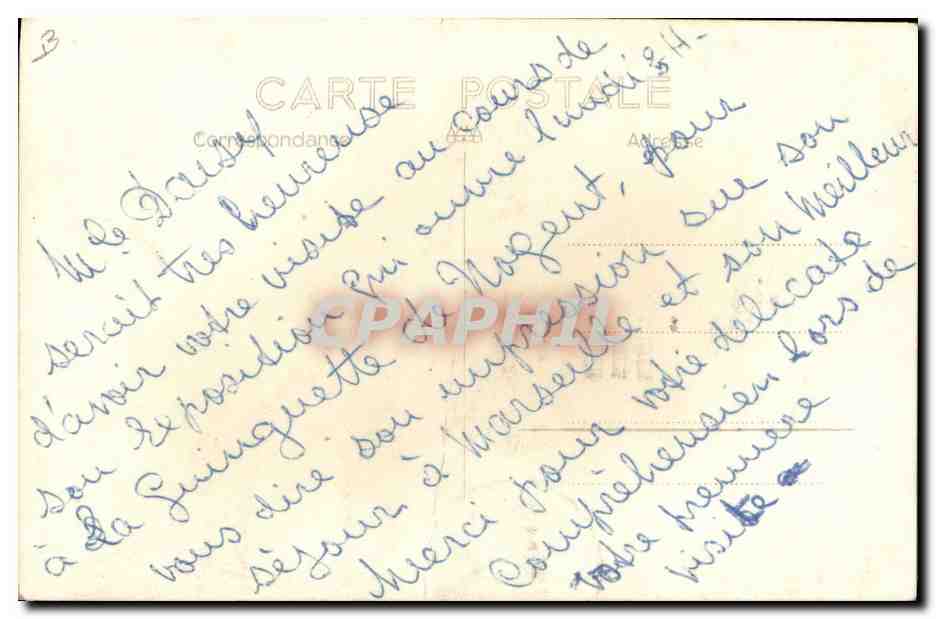 B
CARTE POSTALE
Correspondance
Adresse
CPAPHIL
serait très heureuse
d'avoir votre visite au cours de
son exposition qui ouvre lundi 5 H-
à La Guinguette de Nogent, pour
vous dire son impression su son
séjour à Marseille et son meilleur
Merci pour votre délicate
Compréhension lors de
votre première
visite